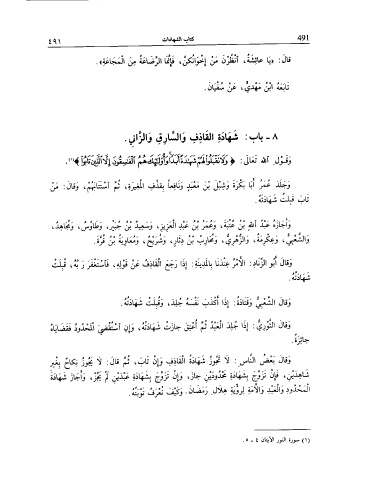 ٤٩١ كتاب الشهادات 491
قالَ: «يا عائِشَةُ، انْظُرْنَ مَنْ إِخْوَانُكُنَّ، فَإِنَّمَا الرَّضَاعَةُ مِنَ المَجَاعَةِ».
تابَعَهُ ابْنُ مَهْدِيٍّ، عَنْ سُفْيَانَ.
٨ - باب: شَهَادَةِ القَاذِفِ وَالسَّارِقِ وَالزَّانِي.
وَقَوْلِ اللهِ تَعَالَى: ﴿وَلَا تَقْبَلُوا لَهُمْ شَهَادَةً أَبَدًا وَأُولَئِكَ هُمُ الْفَاسِقُونَ إِلَّا الَّذِينَ تَابُوا﴾(١).
وَجَلَدَ عُمَرُ أَبَا بَكْرَةَ وَشِبْلَ بْنَ مَعْبَدٍ وَنَافِعاً بِقَذْفِ المُغِيرَةِ، ثُمَّ اسْتَتَابَهُمْ، وَقَالَ: مَنْ
تَابَ قَبِلْتُ شَهَادَتَهُ.
وَأَجَازَهُ عَبْدُ اللهِ بْنُ عُتْبَةَ، وَعُمَرُ بْنُ عَبْدِ العَزِيزِ، وَسَعِيدُ بْنُ جُبَيْرٍ، وَطَاوُسٌ، وَمُجَاهِدٌ،
وَالشَّعْبِيُّ، وَعِكْرِمَةُ، وَالزُّهْرِيُّ، وَمُحَارِبُ بْنُ دِثَارٍ، وَشُرَيْحٌ، وَمُعَاوِيَةُ بْنُ قُرَّةَ.
وَقَالَ أَبُو الزِّنَادِ: الأَمْرُ عِنْدَنَا بِالمَدِينَةِ: إِذَا رَجَعَ القَاذِفُ عَنْ قَوْلِهِ، فَاسْتَغْفَرَ رَبَّهُ، قُبِلَتْ
شَهَادَتُهُ.
وَقَالَ الشَّعْبِيُّ وَقَتَادَةُ: إِذَا أَكْذَبَ نَفْسَهُ جُلِدَ، وَقُبِلَتْ شَهَادَتُهُ.
وَقَالَ الثَّوْرِيُّ: إِذَا جُلِدَ العَبْدُ ثُمَّ أُعْتِقَ جَازَتْ شَهَادَتُهُ، وَإِنِ اسْتُقْضِيَ المَحْدُودُ فَقَضَايَاهُ
جَائِزَةٌ.
وَقَالَ بَعْضُ النَّاسِ: لَا تَجُوزُ شَهَادَةُ القَاذِفِ وَإِنْ تَابَ، ثُمَّ قَالَ: لَا يَجُوزُ نِكَاحٌ بِغَيْرِ
شَاهِدَيْنِ، فَإِنْ تَزَوَّجَ بِشَهَادَةِ مَحْدُودَيْنِ جَازَ، وَإِنْ تَزَوَّجَ بِشَهَادَةِ عَبْدَيْنِ لَمْ يَجُزْ، وَأَجَازَ شَهَادَةَ
المَحْدُودِ وَالعَبْدِ وَالأَمَةِ لِرُؤْيَةِ هِلَالِ رَمَضَانَ. وَكَيْفَ تُعْرَفُ تَوْبَتُهُ.
(١) سورة النور الآيتان ٤ - ٥.